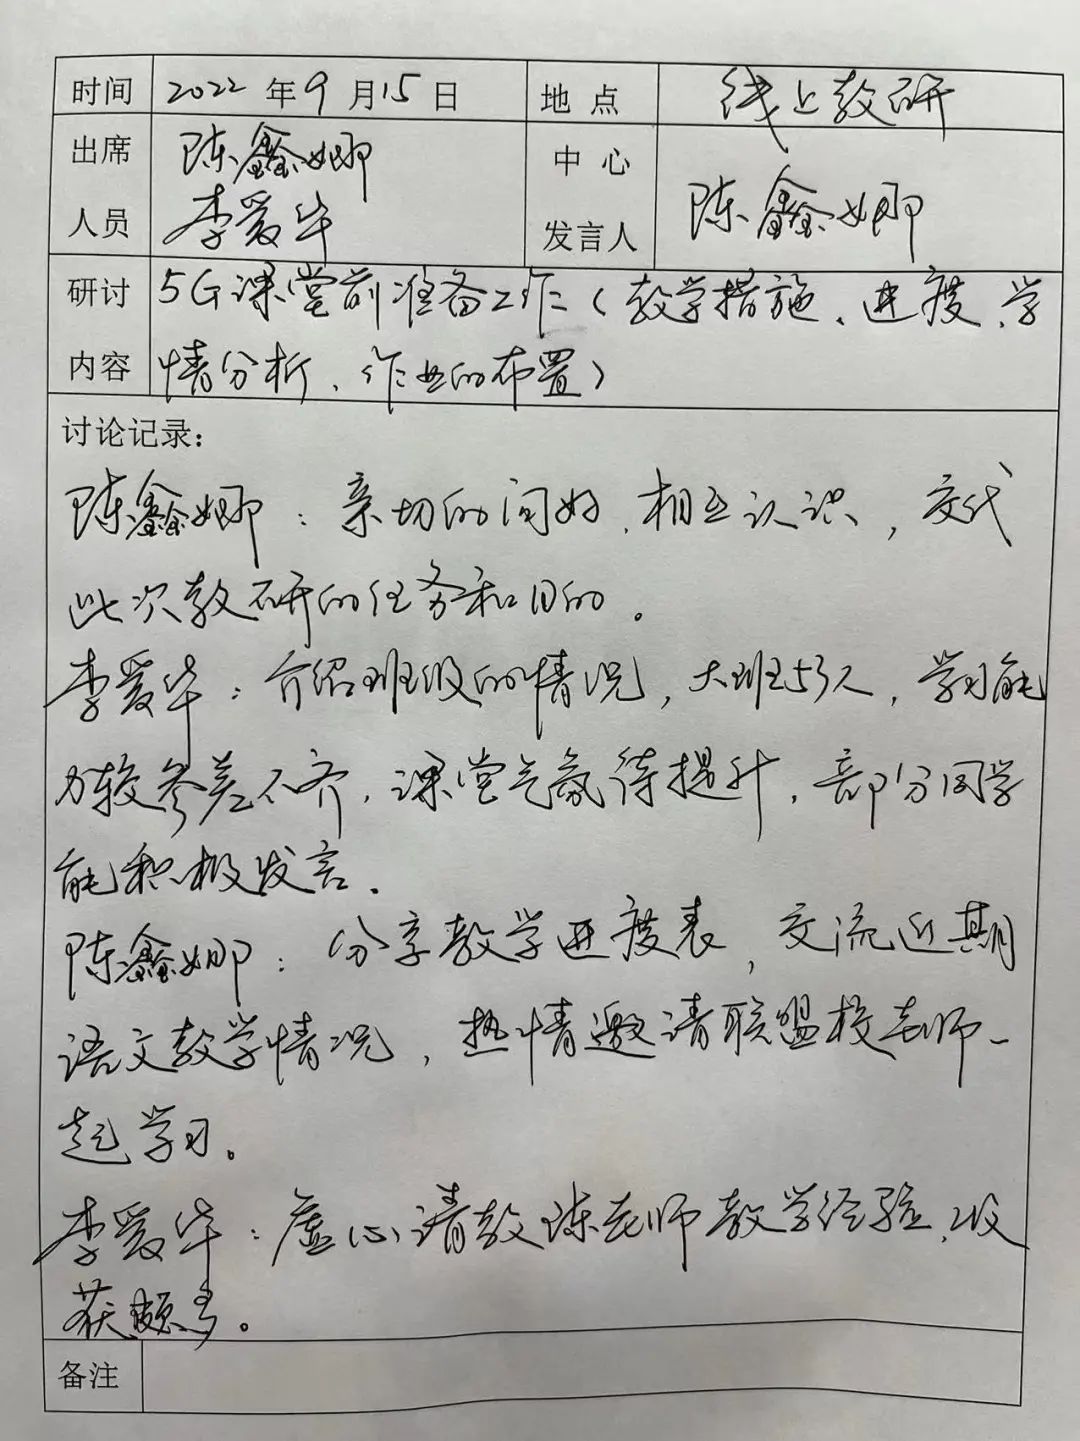 时间 2022年9月15日 地点 线上教研
出席 陈鑫娜 中心
人员 李爱华 发言人 陈鑫娜
研讨 5G课堂前准备工作(教学措施、进度、学
内容 情分析、作业的布置)
讨论记录:
陈鑫娜:亲切的问好,相互认识,交代
此次教研的任务和目的。
李爱华:介绍班级的情况,大班53人,学习能
力较参差不齐,课堂气氛待提升,部分同学
能积极发言.
陈鑫娜:分享教学进度表,交流近期
语文教学情况,热情邀请联盟校老师一
起学习。
李爱华:虚心请教陈老师教学经验,收
获颇多。
备注